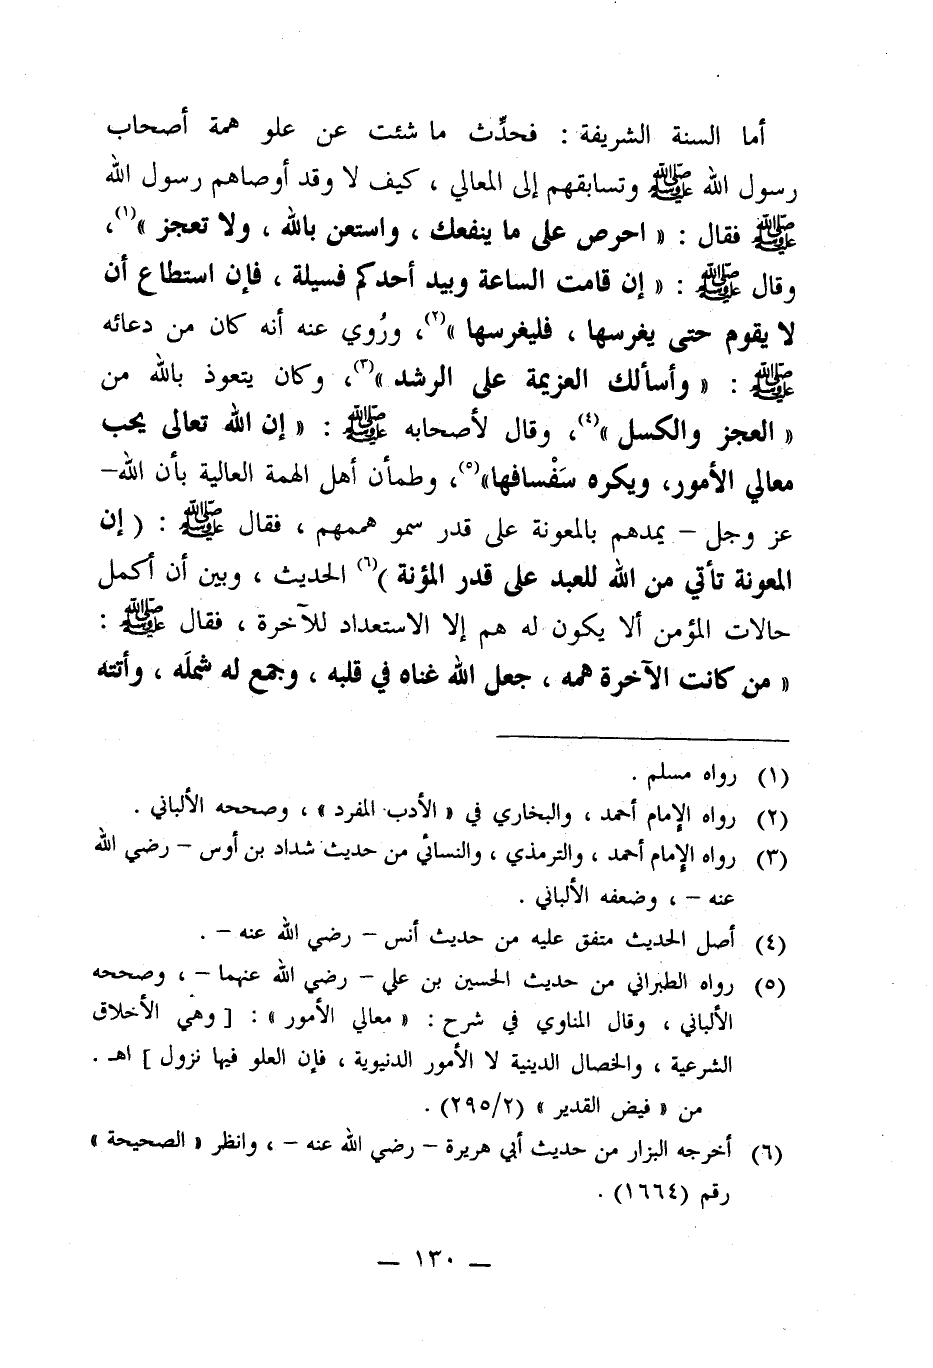 أما السنة الشريفة : فحدِّث ما شئت عن علو همة أصحاب
رسول الله ﷺ وتسابقهم إلى المعالي ، كيف لا وقد أوصاهم رسول الله
ﷺ فقال : « احرص على ما ينفعك ، واستعن بالله ، ولا تعجز »(١)،
وقال ﷺ : « إن قامت الساعة وبيد أحدكم فسيلة ، فإن استطاع أن
لا يقوم حتى يغرسها ، فليغرسها »(٢)، ورُوي عنه أنه كان من دعائه
ﷺ : « وأسألك العزيمة على الرشد »(٣)، وكان يتعوذ بالله من
« العجز والكسل »(٤)، وقال لأصحابه ﷺ : « إن الله تعالى يحب
معالي الأمور، ويكره سَفْسافها»(٥)، وطمأن أهل الهمة العالية بأن الله–
عز وجل – يمدهم بالمعونة على قدر سمو هممهم ، فقال ﷺ : ( إن
المعونة تأتي من الله للعبد على قدر المؤنة )(٦) الحديث ، وبين أن أكمل
حالات المؤمن ألا يكون له هم إلا الاستعداد للآخرة ، فقال ﷺ :
« من كانت الآخرة همه ، جعل الله غناه في قلبه ، وجمع له شملَه ، وأتته
(١) رواه مسلم .
(٢) رواه الإمام أحمد ، والبخاري في « الأدب المفرد » ، وصححه الألباني .
(٣) رواه الإمام أحمد ، والترمذي ، والنسائي من حديث شداد بن أوس – رضي الله
عنه – ، وضعفه الألباني .
(٤) أصل الحديث متفق عليه من حديث أنس – رضي الله عنه – .
(٥) رواه الطبراني من حديث الحسين بن علي – رضي الله عنهما – ، وصححه
الألباني ، وقال المناوي في شرح : « معالي الأمور » : [ وهي الأخلاق
الشرعية ، والخصال الدينية لا الأمور الدنيوية ، فإن العلو فيها نزول ] اهـ .
من « فيض القدير » (٢٩٥/٢) .
(٦) أخرجه البزار من حديث أبي هريرة – رضي الله عنه – ، وانظر « الصحيحة »
رقم (١٦٦٤) .
– ١٣٠ –